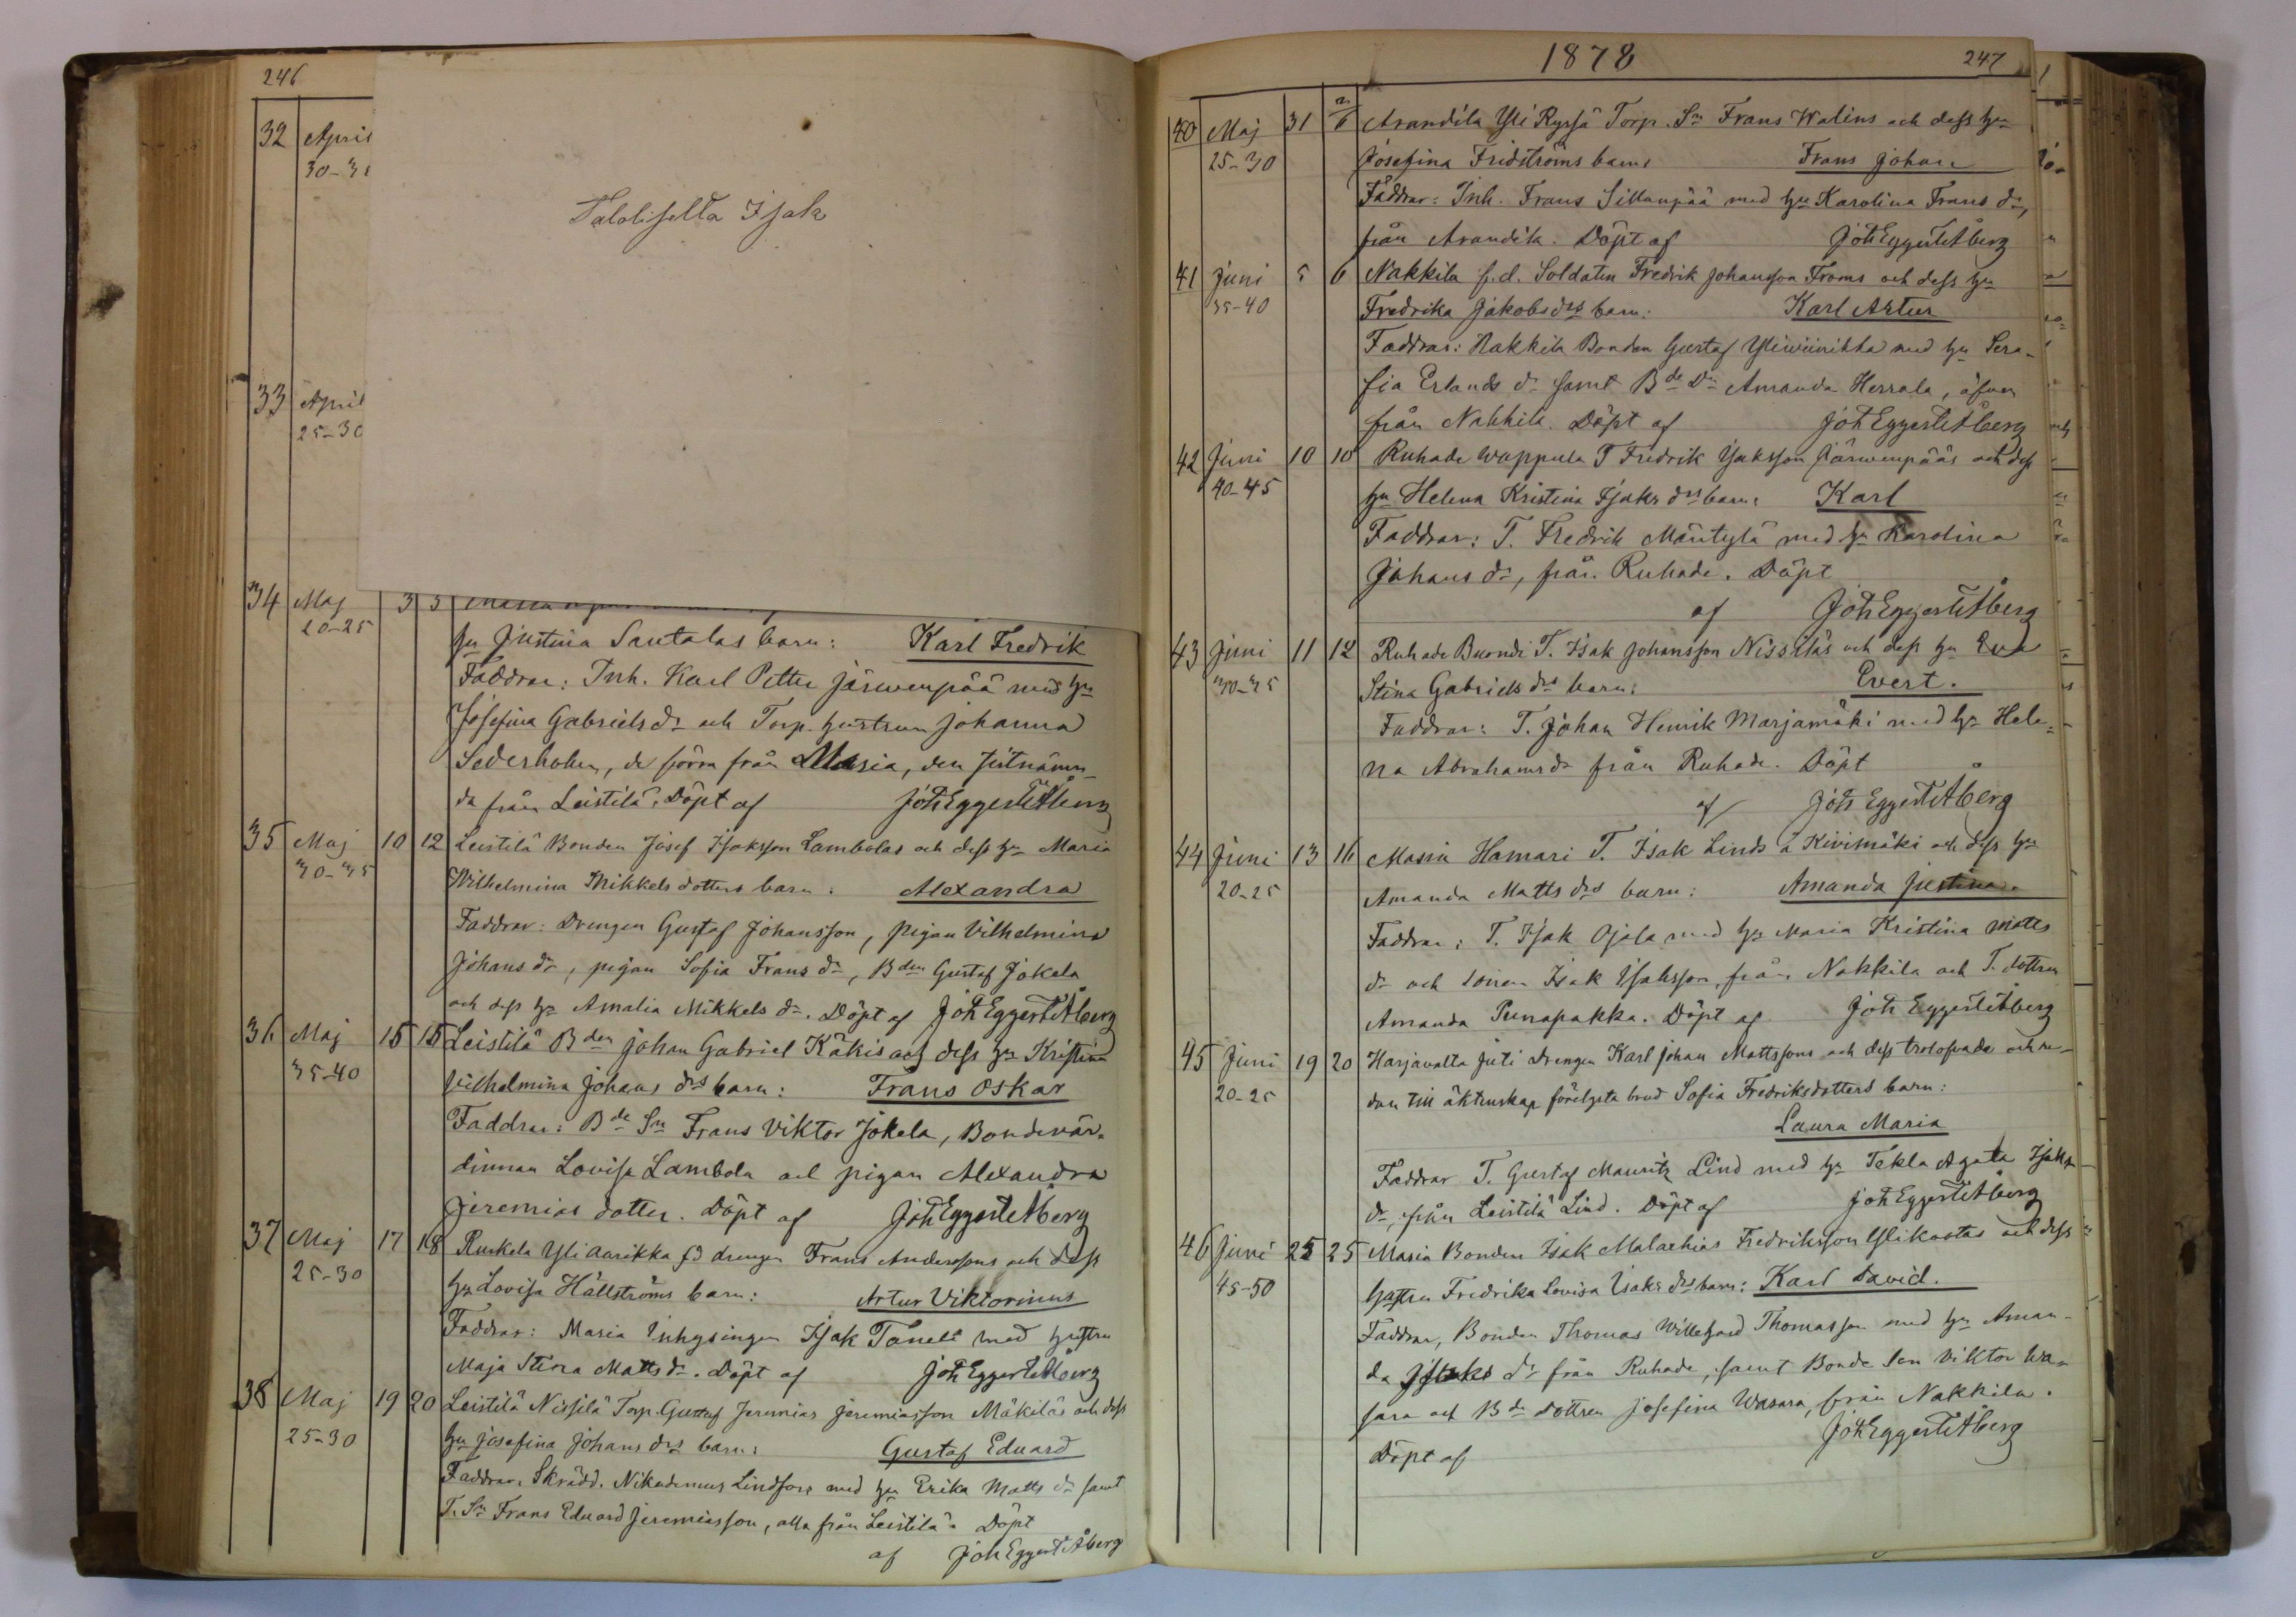 246
32 April
30-3
Taloliselta Isak
33 April
25-30
34 Maj 3 5
20-25
hu Justina Santalas barn: Karl Fredrik
Faddrar: Inh. Karl Petter Järwenpää med hu
Josefina Gabriels dr och Torp. hustrun Johanna
Sederholm, de förra från Masia, den sistnämn-
da från Leistilä. Döpt af Joh Eggert Åberg
35 Maj 10 12 Leistilä Bonden Josef Isaksson Lambolas och dess hu Maria
30-35
Wilhelmina Mikkels dotters barn: Alexandra
Faddrar: Drengen Gustaf Johansson, pigan Vilhelmina
Johans dr, pigan Sofia Frans dr, Bden Gustaf Jokela
och dess hu Amalia Mikkels dr. Döpt af Joh Eggert Åberg
36 Maj 15 15 Leistilä Bden Johan Gabriel Käkis och dess hu Kristina
35-40
Vilhelmina Johans drs barn: Frans Oskar
Faddrar: Bde Sn Frans Viktor Jokela, Bondevär-
dinnan Lovisa Lambola och pigan Alexandra
Jeremias dotter. Döpt af Joh Eggert Åberg
37 Maj 17 18 Ruskela Yli Aarikka drengen Frans Anderssons och dess
25-30
hu Lovisa Hällströms barn: Artur Viktorinus
Faddrar: Masia Inhysingen Isak Taneli med hustru
Maja Stina Matts dr. Döpt af Joh Eggert Åberg
38 Maj 19 20 Leistilä Nissilä Torp. Gustaf Jeremias Jeremiasson Mäkiläs och dess
25-30
hu Josefina Johans drs barn: Gustaf Eduard
Faddrar. Skrädd. Nikodemus Lindfors med hu Erika Matts dr samt
T. Sn Frans Eduard Jeremiasson, alla från Leistilä. Döpt
af Joh Eggert Åberg
1878 247
40 Maj 31 2/6 Arandila Yli Ryssä Torp. Sn Frans Walins och dess hu
25-30
Josefina Fridströms barn: Frans Johan
Faddrar: Inh. Frans Sillanpää med hu Karolina Frans dr,
från Arandila. Döpt af Joh Eggert Åberg
41 Juni 5 6 Nakkila f.d. Soldaten Fredrik Johansson Froms och dess hu
35-40
Fredrika Jakobs drs barn: Karl Artur
Faddrar: Nakkila Bonden Gustaf Yliviinikka med hu Sera-
fia Erlands dr samt Bde Dr Amanda Herrala, äfven
från Nakkila. Döpt af Joh Eggert Åberg
42 Juni 10 10 Ruhade Wappula T Fredrik Isaksson Järwenpääs och dess
40-45
hu Helena Kristina Isaks drs barn: Karl
Faddrar: T. Fredrik Mäntylä med hu Karolina
Johans dr, från Ruhade. Döpt
af Joh Eggert Åberg
43 Juni 11 12 Ruhade Buondi T. Isak Johansson Nissiläs och dess hu Eva
30-35
Stina Gabriels drs barn: Evert.
Faddrar: T. Johan Henrik Marjamäki med hu Hele-
na Abrahams dr från Ruhade. Döpt
af Joh Eggert Åberg
44 Juni 13 16 Masia Hamari T. Isak Linds å Kivimäki och dess hu
20-25
Amanda Matts drs barn: Amanda Justina.
Faddrar: T. Isak Ojala med hu Maria Kristina Matts
dr och sonen Isak Isaksson, från Nakkila och T. dottren
Amanda Punapakka. Döpt af Joh Eggert Åberg
45 Juni 19 20 Harjavalta Juti Drengen Karl Johan Mattssons och dess trolofvade och re-
20-25
dan till äktenskap förelysta brud Sofia Fredriksdotters barn:
Laura Maria
Faddrar T. Gustaf Mauritz Lind med hu Tekla Agata Isaks
dr, från Leistilä Lind. Döpt af Joh Eggert Åberg
46 Juni 25 25 Masia Bonden Isak Malachias Fredriksson Ylikostas och dess
45-50
hustru Fredrika Lovisa Isaks drs barn: Karl David.
Faddrar, Bonden Thomas Willehard Thomasson med hu Aman-
da Isaks dr från Ruhade, samt Bonde Son Viktor Wa-
sara och Bde dottren Josefina Wasara, från Nakkila.
Döpt af Joh Eggert Åberg